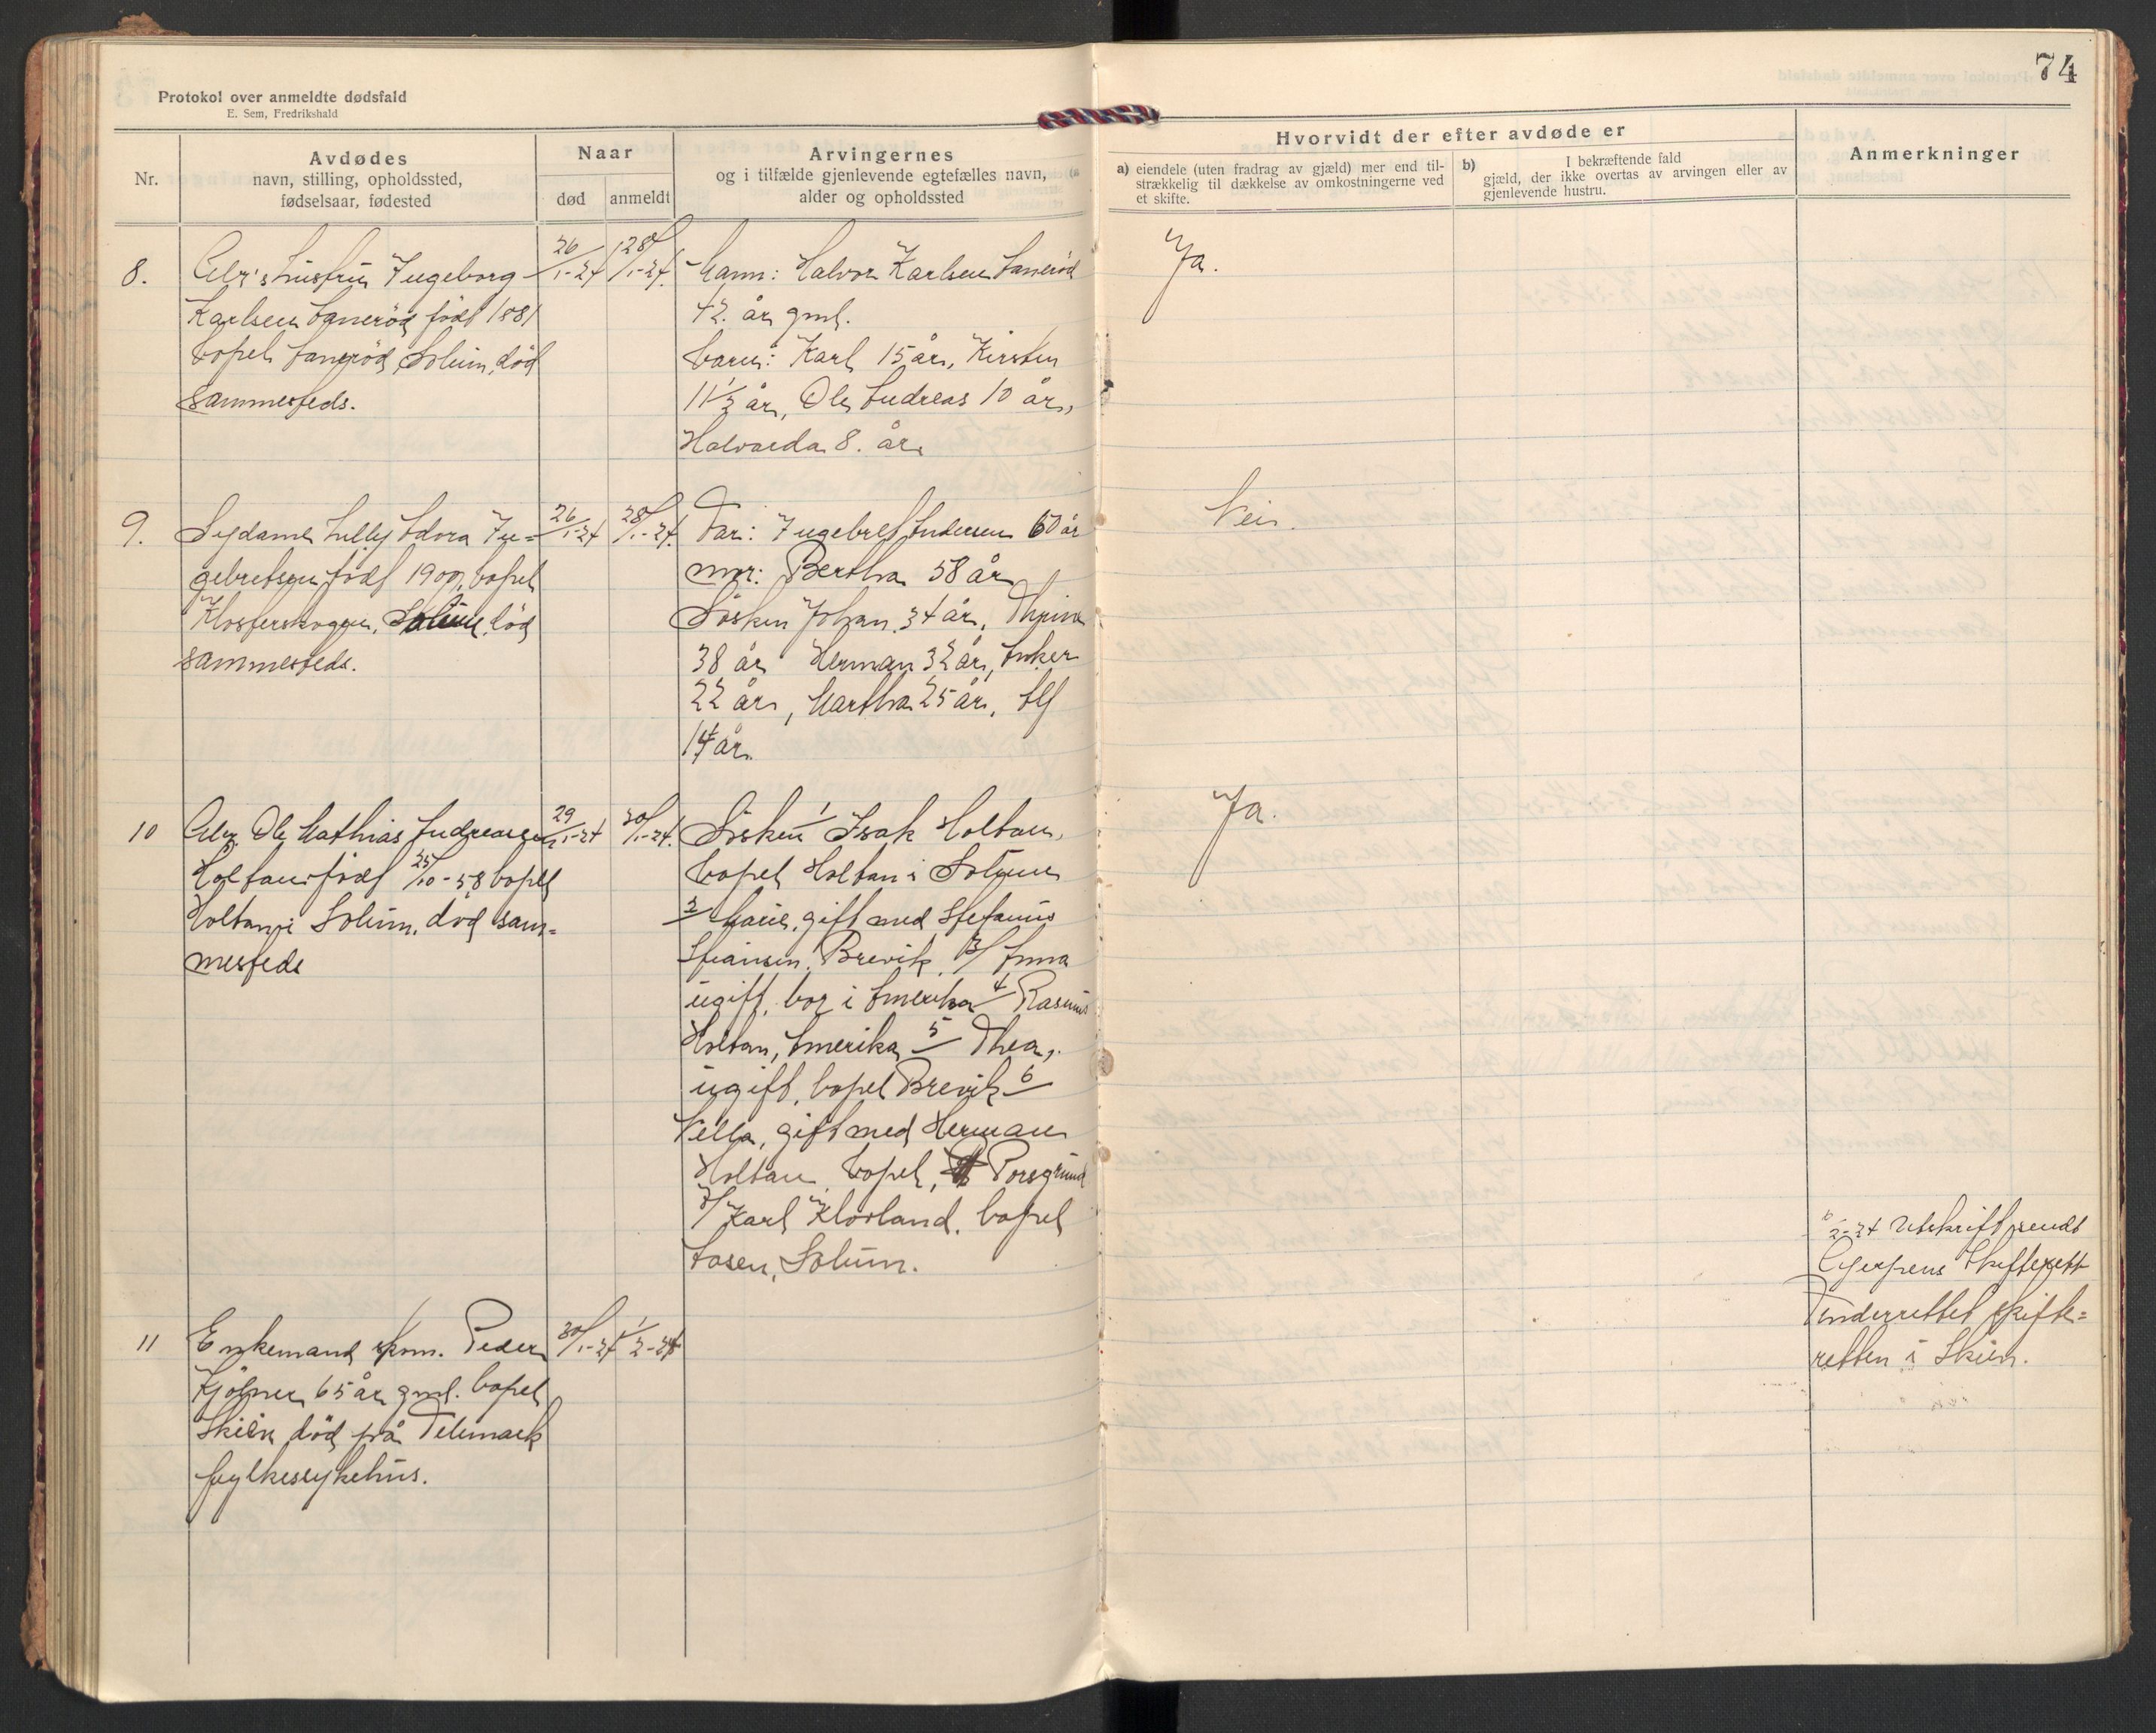 74
Protokol over anmeldte dødsfald
E. Sem, Fredrikshald
Nr.
Avdødes
navn, stilling, opholdssted,
fødselsaar, fødested
Naar
død
anmeldt
Arvingernes
og i tilfælde gjenlevende egtefælles navn,
alder og opholdssted
Hvorvidt der efter avdøde er
a) eiendele (uten fradrag av gjæld) mer end til-
strækkelig til dækkelse av omkostningerne ved
et skifte.
b) I bekræftende fald
gjæld, der ikke overtas av arvingen eller av
gjenlevende hustru.
Anmerkninger
8.
hustru Ingeborg
Karlsen født 1881
bopel Solum, død
sammesteds.
26/1-24
28/1-24.
Mann: Halvor Karlsen
42. år gml.
barn: Karl 15 år, Kirsten
11 1/2 år, Ole Andreas 10 år,
Halvarda 8. år
Ja.
9.
Sydame Lilly Edora In=
gebretsen født 1900, bopel
Klosterskogen, Solum, død
sammesteds.
26/1-24
28/1-24.
Far: Ingebret Andersen 60 år
mor: Bertha 58 år
Søsken Johan 34 år,
38 år Herman 32 år, Anker
22 år, Martha 25 år, Alf
14 år.
Nei.
10
Ole Mathias Andreasen
Holtan født 25/10-58 bopel
Holtan i Solum, død sam=
mesteds
29/1-24
30/1-24.
Søsken 1/ Isak Holtan,
bopel Holtan i Solum
2/ Marie, gift med Stefanus
Brevik, 3/ Anna
ugift, bor i Amerika 4/ Rasmus
Holtan, Amerika 5/ Thea,
ugift, bopel Brevik 6/
gift med Herman
Holtan bopel, Porsgrund
7/ Karl Klovland, bopel
Solum.
Ja.
11
Enkemand Peder
65 år gml. bopel
Skien død på Telemark
fylkessykehus.
30/1-24
1/2-24
2-24 Utskrift sendt
Gjerpens Skifterett
underrettet skifte=
retten i Skien.